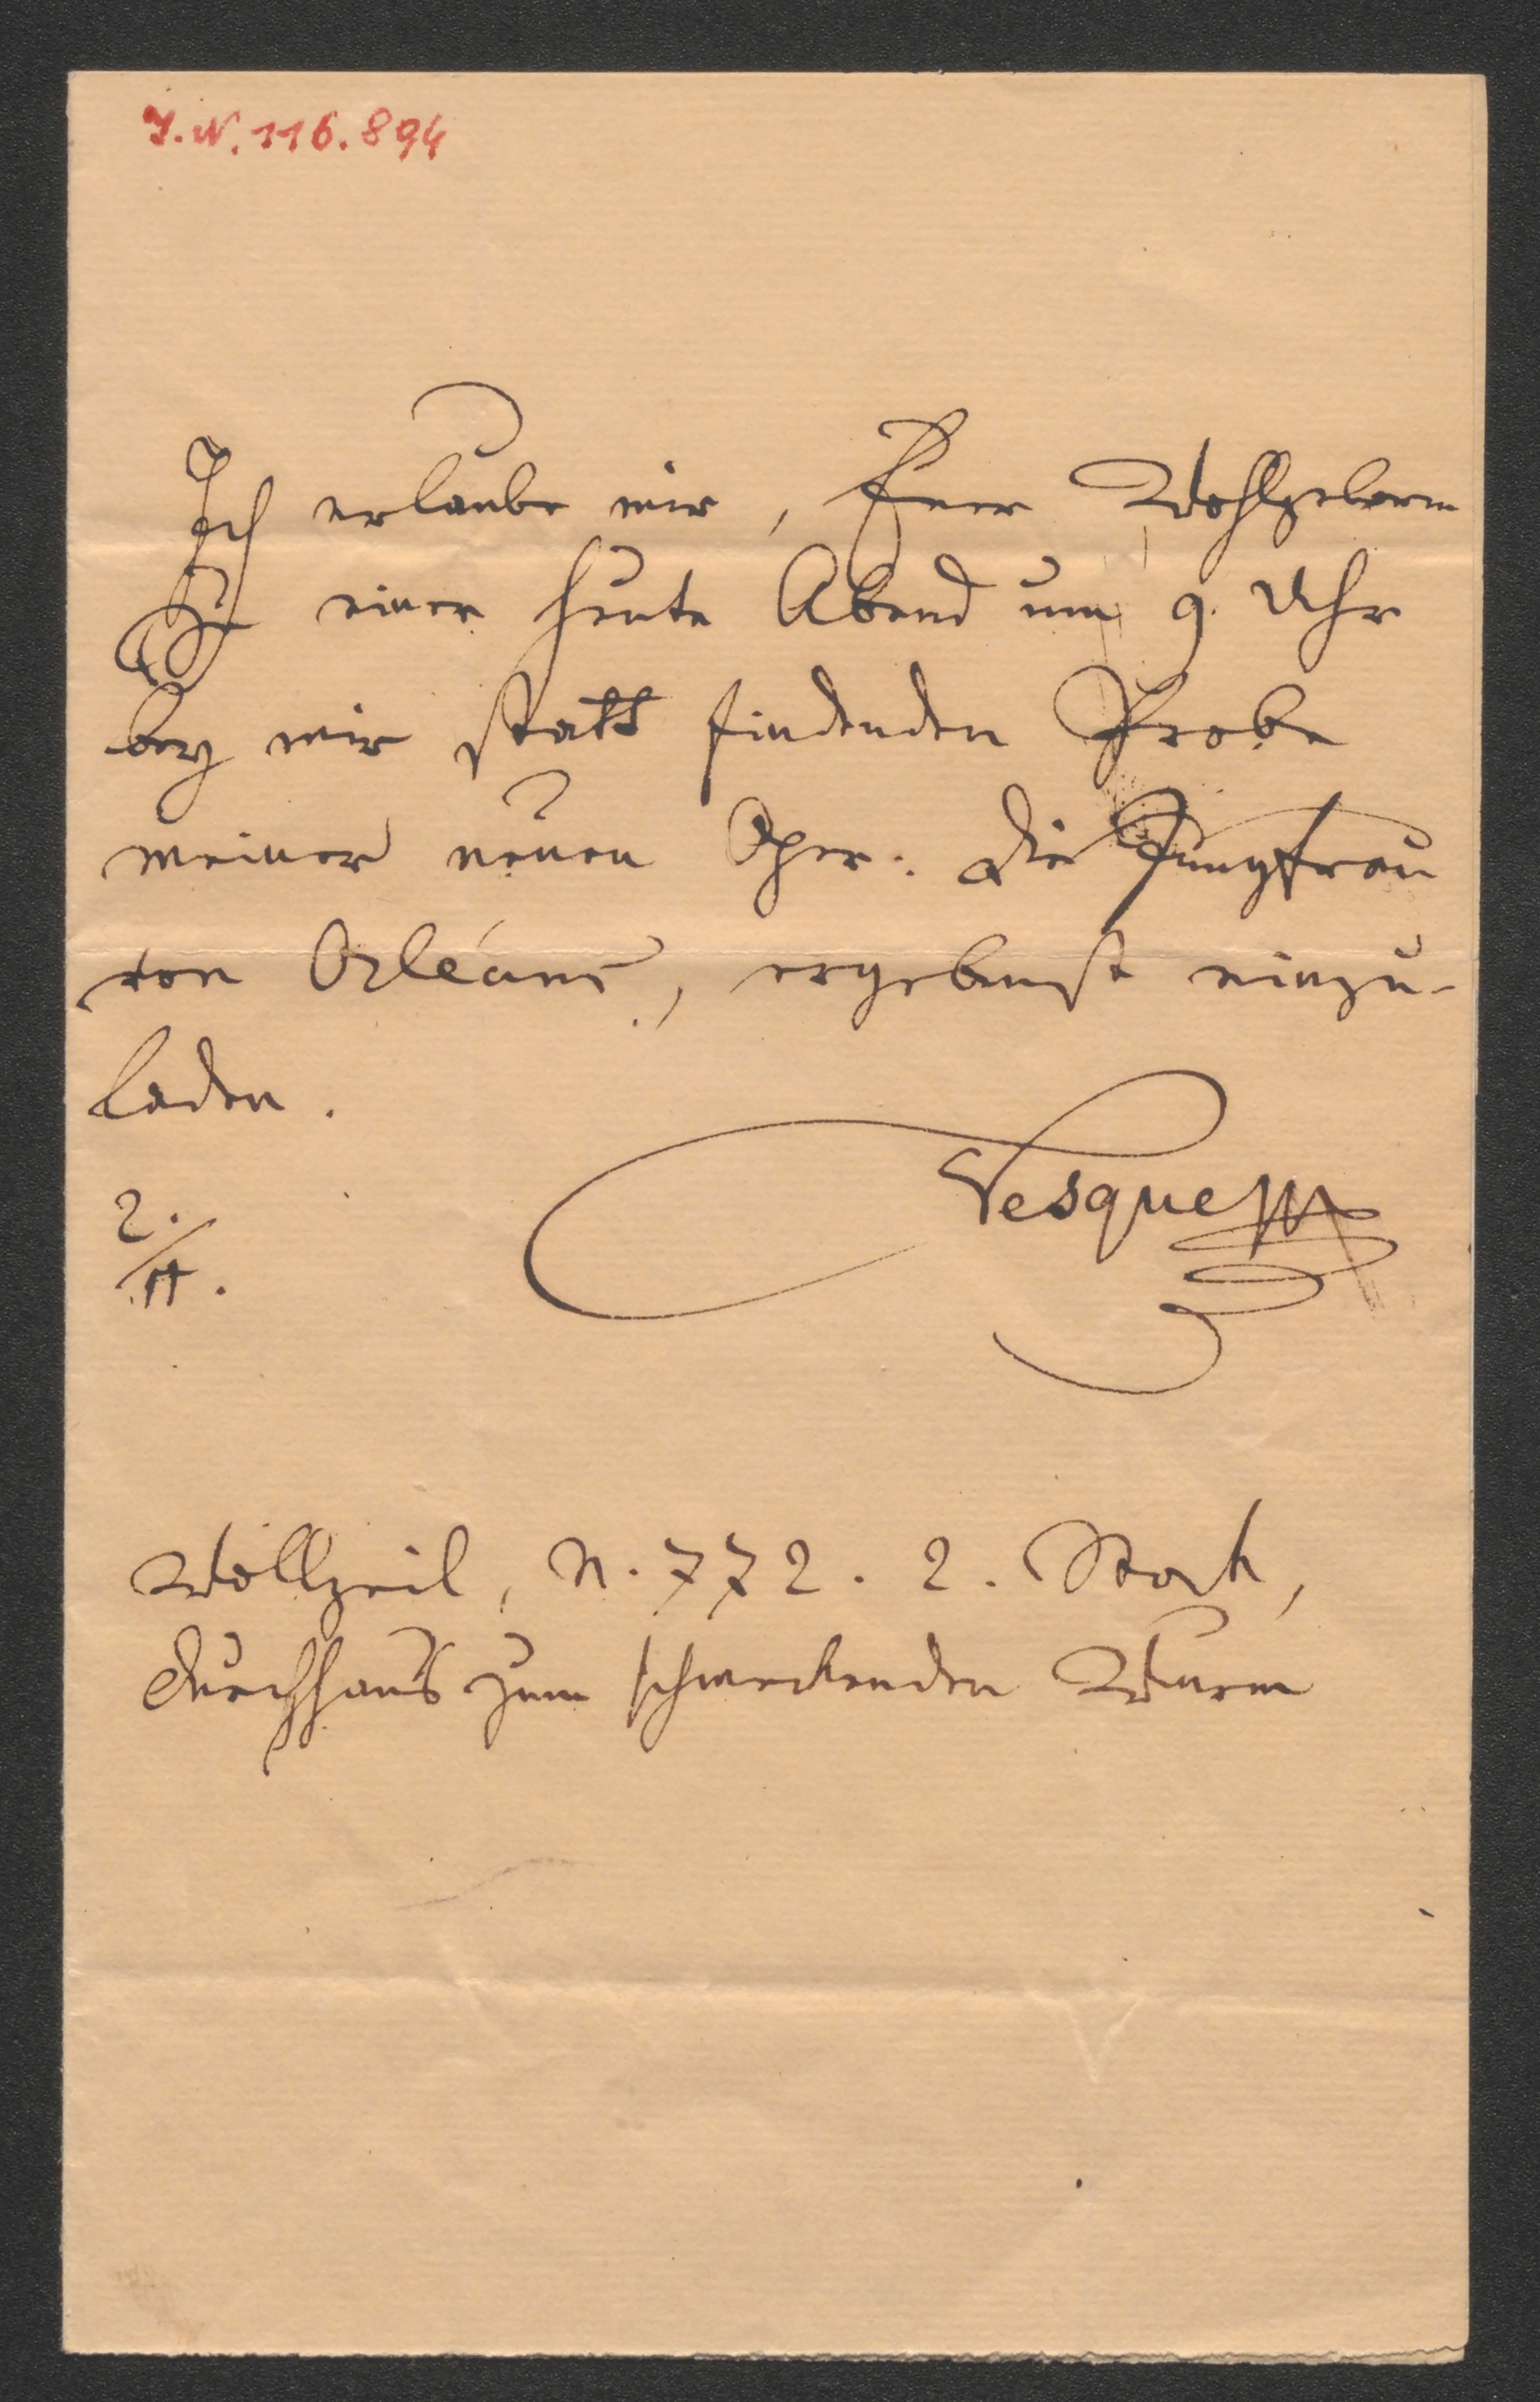 I.N. 116.894
Ich erlaube mir, Euer Wohlgeborn
zu einer heute Abend um 9. Uhr
bey mir statt findenden Probe
meiner neuen Oper: die Jungfrau
von Orléans, ergebenst einzu-
laden.
2./
Vesque
Wollzeil, N. 772. 2. Stock,
Durchhaus zum schmeckenden Wurm